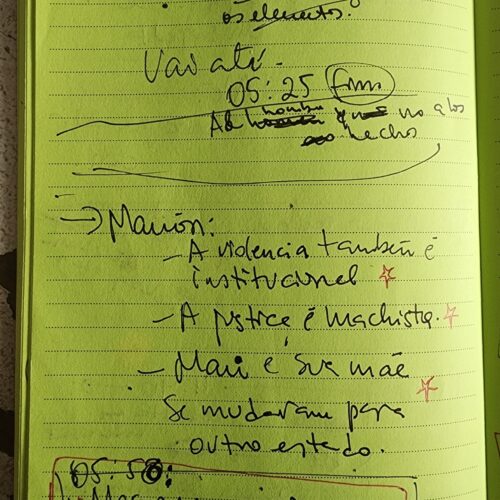 os elementos.
Vai até.
05:25 fim
Al hombre que no a los
hechos
→ Marión:
– A violencia também é
institucional ☆
– A justiça é machista. ☆
– Mari e sua mãe ☆
se mudaram para
outro estado.
05:58: